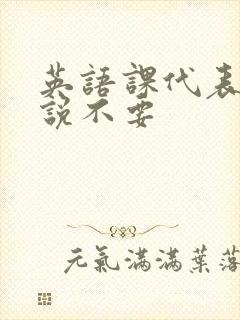 英語課代表
説不要
元氣滿滿葉落